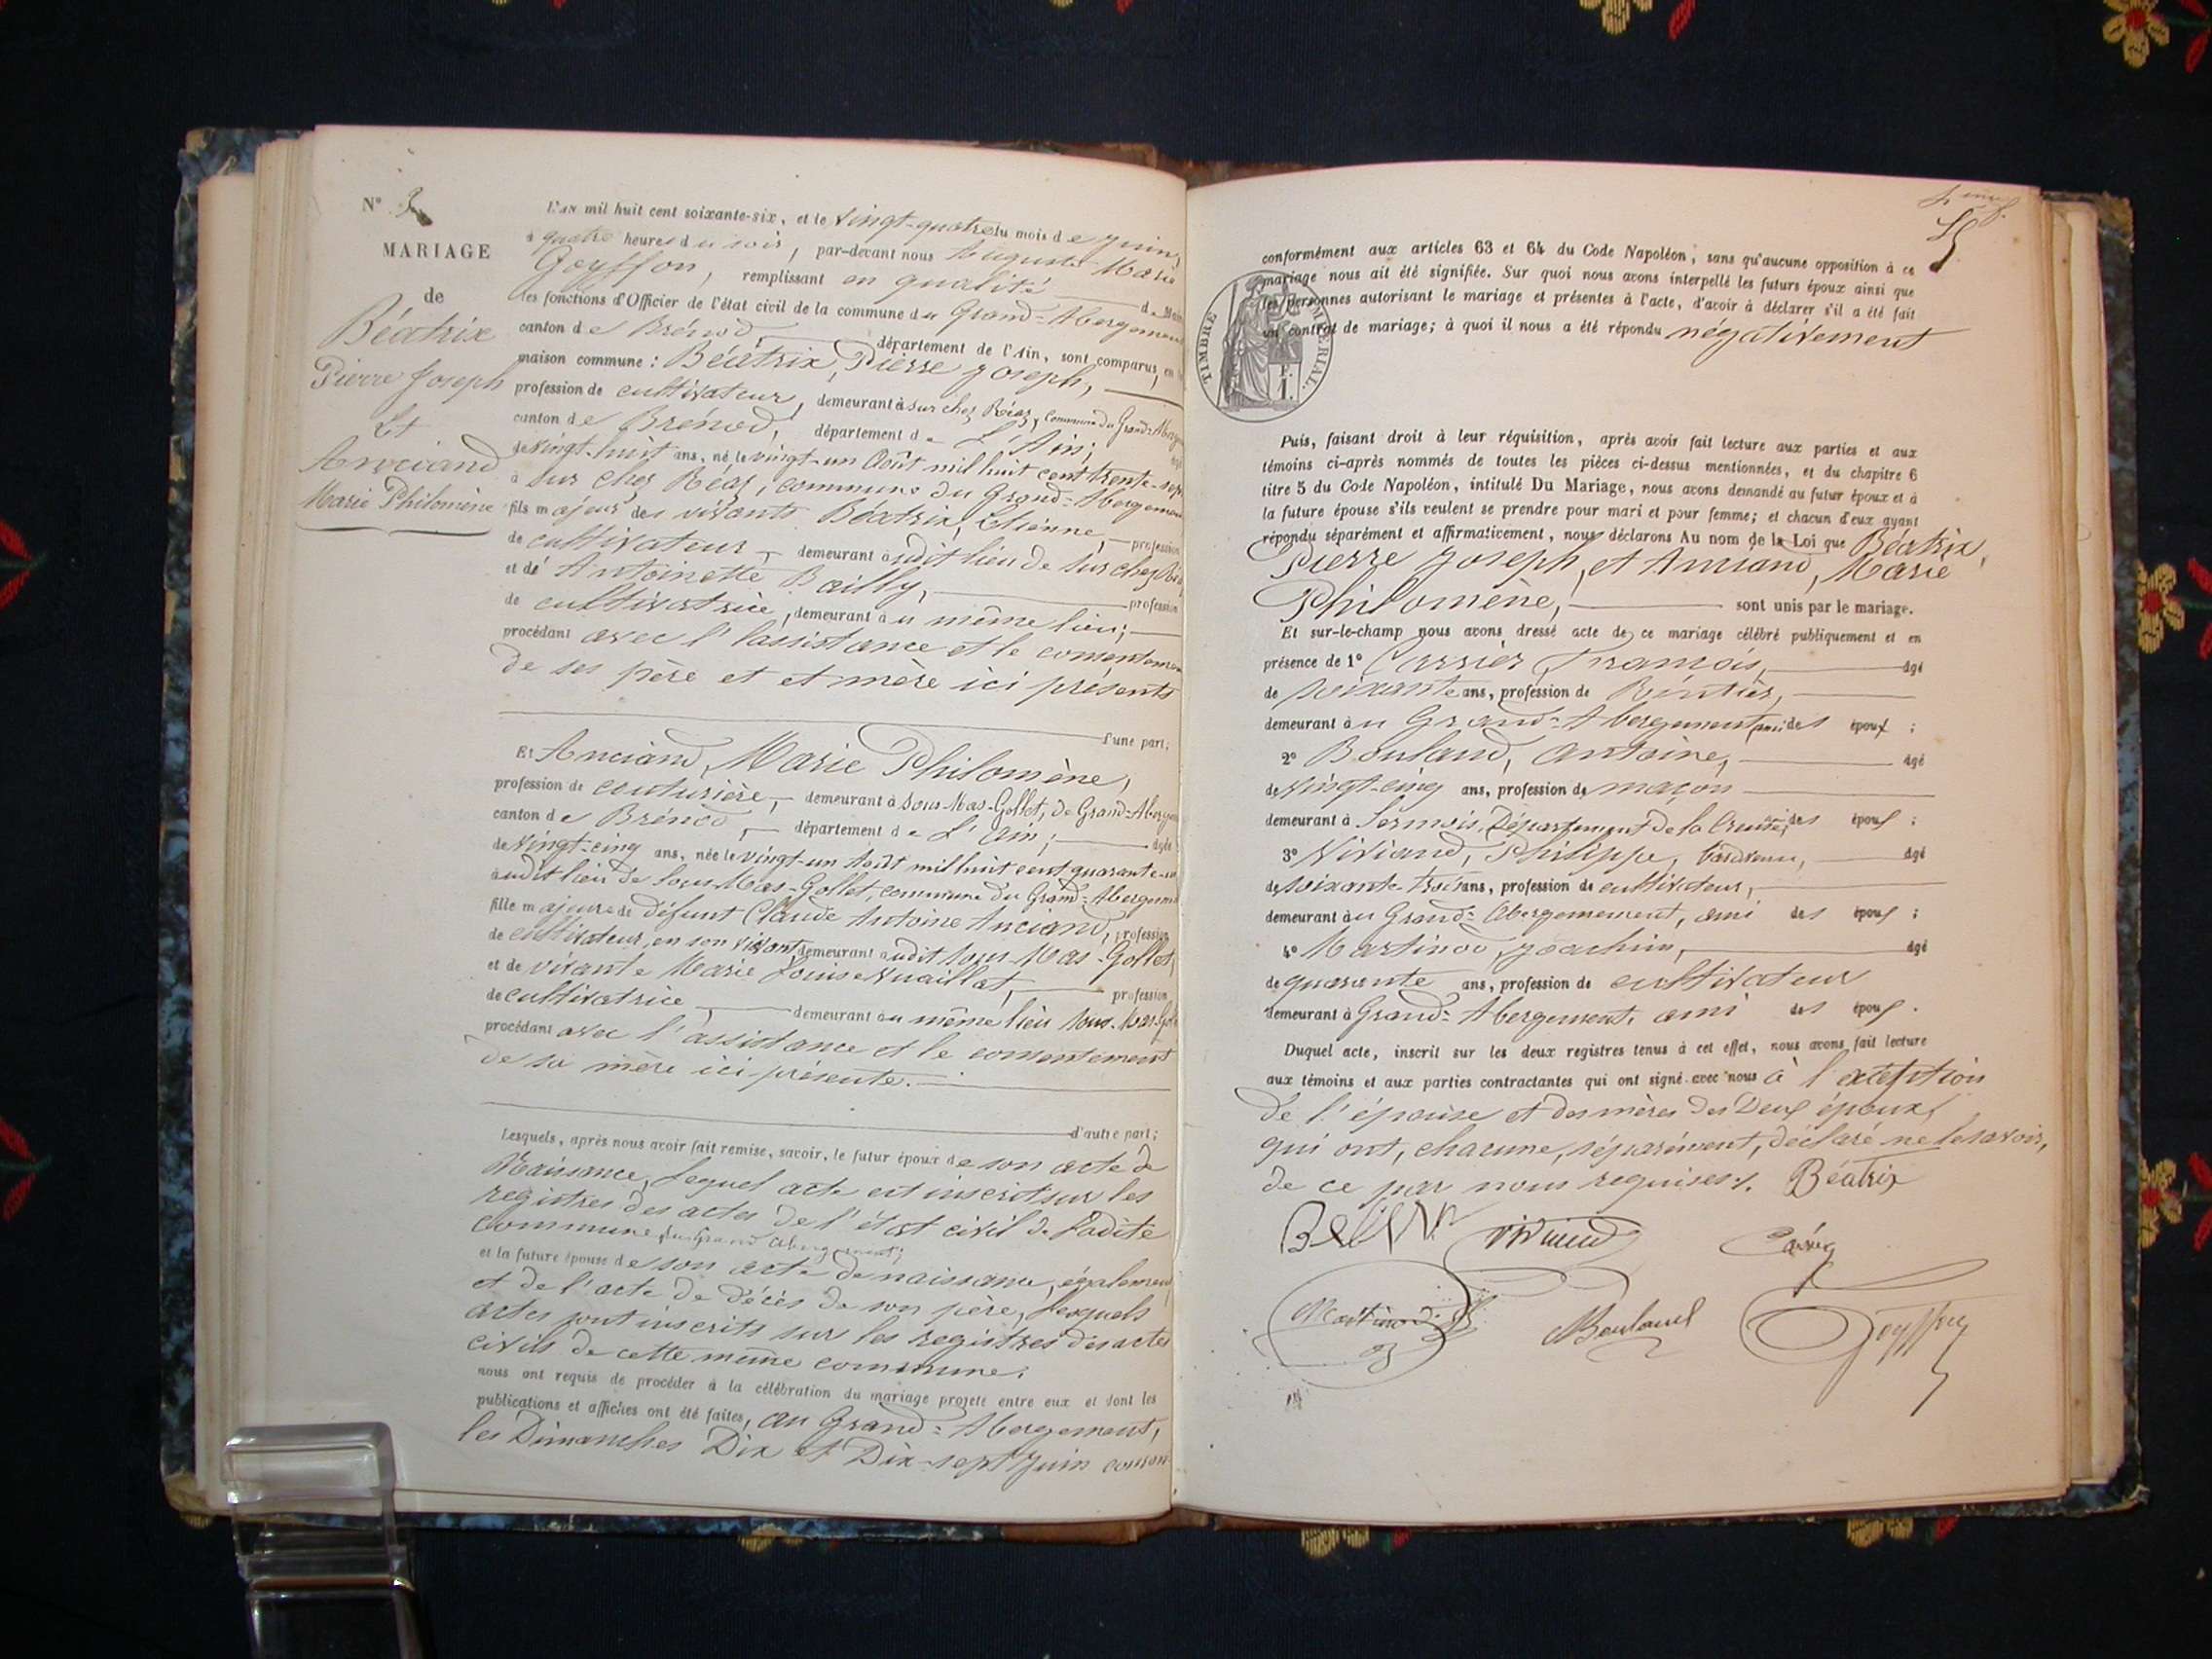 N° 3
MARIAGE
de
Béatrix
Pierre Joseph
Et
Anciand
Marie Philomène
L'AN mil huit cent soixante-six, et le vingt-quatre du mois de juin,
à quatre heures du soir, par-devant nous Auguste Marie
Goyffon, remplissant en qualité de Maire
les fonctions d'Officier de l'état civil de la commune du Grand-Abergement
canton de Brénod, département de l'Ain, sont comparus, en
maison commune: Béatrix, Pierre Joseph,
profession de cultivateur, demeurant à sur chez Réas, commune du Grand-Aberg
canton de Brénod, département de L'Ain;
de vingt-huit ans, né le vingt-un Août mil huit cent trente-sept
à sur chez Réas, commune du Grand-Abergement
fils majeur des vivants Béatrix, Etienne, profession
de cultivateur, demeurant audit lieu de sur chez Réas
et de Antoinette Bailly, profession
de cultivatrice, demeurant au même lieu;
procédant avec l'assistance et le consentement
de ses père et et mère ici présents
d'une part;
Et Anciand, Marie Philomène,
profession de couturière, demeurant à Sous-Mas-Gollet, de Grand-Aberge
canton de Brénod, département de L'Ain; âgée
de vingt-cinq ans, née le vingt-un Août mil huit cent quarante
audit lieu de Sous-Mas-Gollet, commune du Grand-Abergement
fille majeure de défunt Claude Antoine Anciand, profession
de cultivateur, en son vivant demeurant audit Sous-Mas-Gollet,
et de vivante Marie Louise Nuaillat, profession
de cultivatrice, demeurant au même lieu Sous-Mas-Goll
procédant avec l'assistance et le consentement
de sa mère ici présente.
d'autre part;
Lesquels, après nous avoir fait remise, savoir, le futur époux de son acte de
Naissance, lequel acte est inscrit sur les
registres des actes de l'état civil de ladite
commune du Grand Abergement;
et la future épouse de son acte de naissance, également
et de l'acte de décès de son père, lesquels
actes sont inscrits sur les registres des actes
civils de cette même commune.
nous ont requis de procéder à la célébration du mariage projeté entre eux et dont les
publications et affiches ont été faites, au Grand-Abergement,
les Dimanches Dix et Dix-sept Juin couran
conformément aux articles 63 et 64 du Code Napoléon, sans qu'aucune opposition à ce
mariage nous ait été signifiée. Sur quoi nous avons interpellé les futurs époux ainsi que
les personnes autorisant le mariage et présentes à l'acte, d'avoir à déclarer s'il a été fait
un contrat de mariage; à quoi il nous a été répondu négativement
TIMBRE IMPÉRIAL.
Puis, faisant droit à leur réquisition, après avoir fait lecture aux parties et aux
témoins ci-après nommés de toutes les pièces ci-dessus mentionnées, et du chapitre 6
titre 5 du Code Napoléon, intitulé Du Mariage, nous avons demandé au futur époux et à
la future épouse s'ils veulent se prendre pour mari et pour femme; et chacun d'eux ayant
répondu séparément et affirmativement, nous déclarons Au nom de la Loi que Béatrix,
Pierre Joseph, et Anciand, Marie
Philomène, sont unis par le mariage.
Et sur-le-champ nous avons dressé acte de ce mariage célébré publiquement et en
présence de 1° Carrier François, âgé
de soixante ans, profession de Rentier,
demeurant au Grand-Abergement, ami des époux;
2° Boulaud, Antoine, âgé
de vingt-cinq ans, profession de maçon
demeurant à Sermois, Département de la Creuse, des époux;
3° Viviand, Philippe, âgé
de soixante-trois ans, profession de cultivateur,
demeurant au Grand-Abergement, ami des époux;
4° Martinod, Joachim, âgé
de quarante ans, profession de cultivateur
demeurant à Grand-Abergement, ami des époux.
Duquel acte, inscrit sur les deux registres tenus à cet effet, nous avons fait lecture
aux témoins et aux parties contractantes qui ont signé avec nous à l'exteption
de l'épouse et des mères des Deux époux,
qui ont, chacune, séparément, déclaré ne le savoir,
de ce par nous requises. Béatrix
Viviand
Martinod
Boulaud
Goyffon